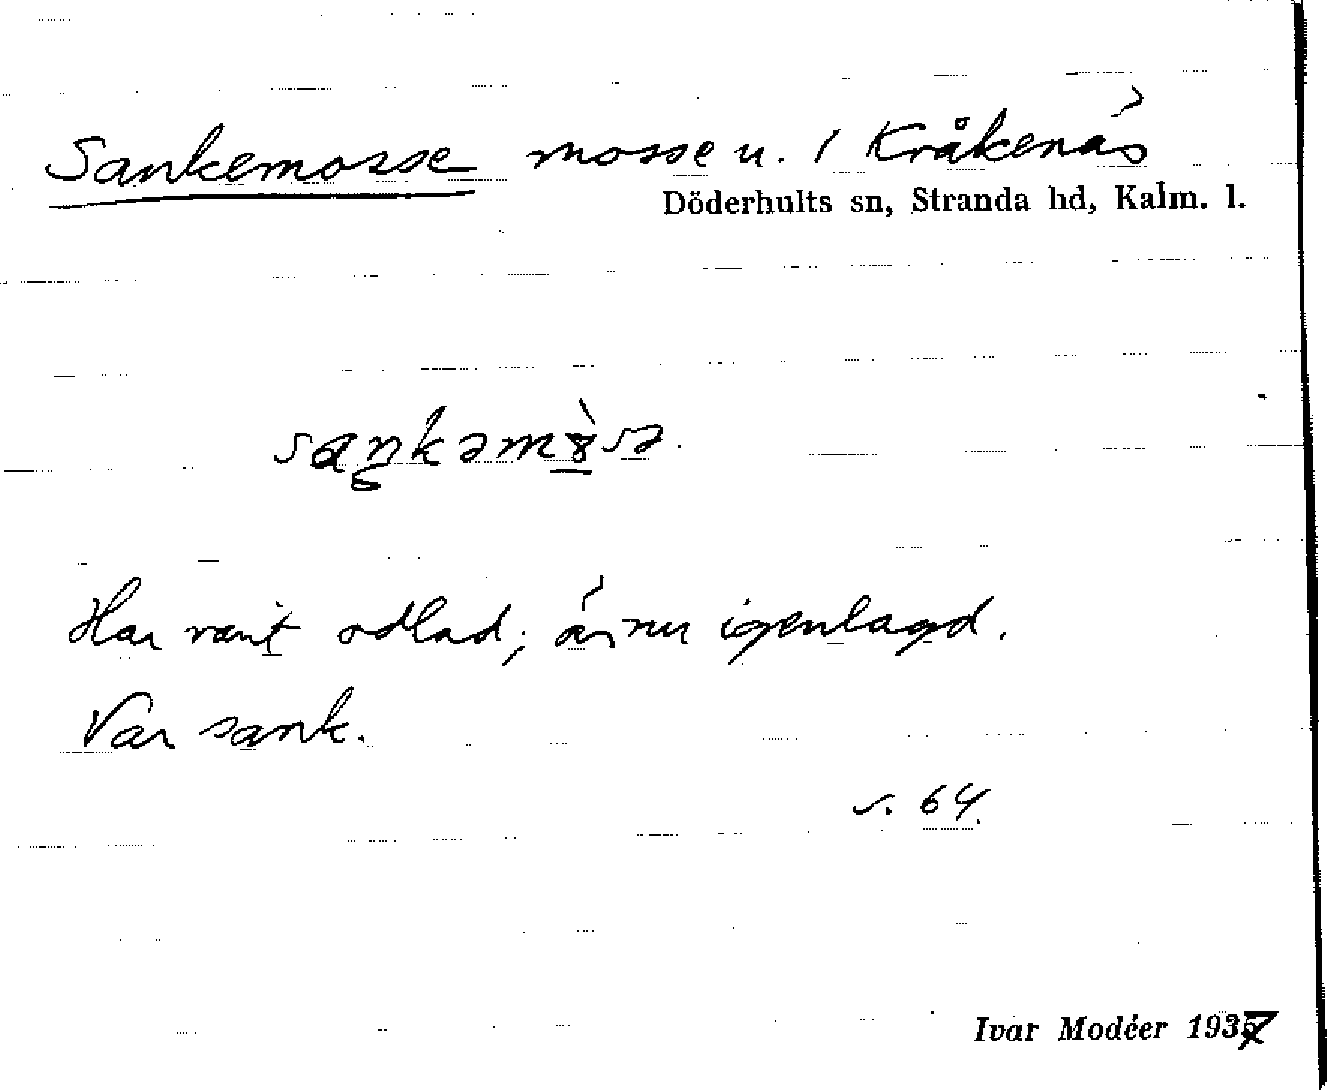 Sankemosse mosse u. 1 Kråkenäs
Döderhults sn, Stranda hd, Kalm. l.
Har varit odlad; är nu igenlagd.
Var sank.
s. 64.
Ivar Modéer 1937